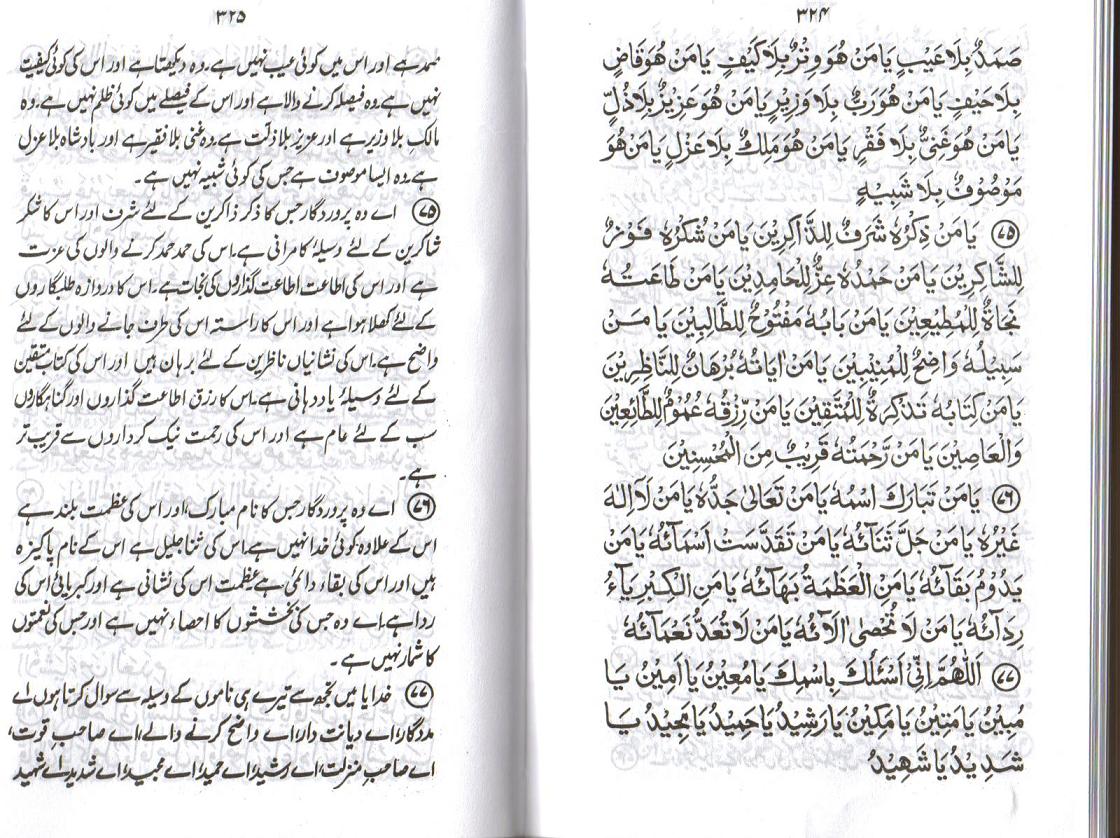 ۳۲۴
صَمَدٌ بِلَا عَيْبٍ يَا مَنْ هُوَ وِتْرٌ بِلَا كَيْفٍ يَا مَنْ هُوَ قَاضٍ
بِلَا حَيْفٍ يَا مَنْ هُوَ رَبٌّ بِلَا وَزِيْرٍ يَا مَنْ هُوَ عَزِيْزٌ بِلَا ذُلٍّ
يَا مَنْ هُوَ غَنِىٌّ بِلَا فَقْرٍ يَا مَنْ هُوَ مَلِكٌ بِلَا عَزْلٍ يَا مَنْ هُوَ
مَوْصُوْفٌ بِلَا شَبِيْهٍ
۷۵ يَا مَنْ ذِكْرُهٗ شَرَفٌ لِلذَّاكِرِيْنَ يَا مَنْ شُكْرُهٗ فَوْزٌ
لِلشَّاكِرِيْنَ يَا مَنْ حَمْدُهٗ عِزٌّ لِلْحَامِدِيْنَ يَا مَنْ طَاعَتُهٗ
نَجَاةٌ لِلْمُطِيْعِيْنَ يَا مَنْ بَابُهٗ مَفْتُوْحٌ لِلطَّالِبِيْنَ يَا مَنْ
سَبِيْلُهٗ وَاضِحٌ لِلْمُنِيْبِيْنَ يَا مَنْ اٰيَاتُهٗ بُرْهَانٌ لِلنَّاظِرِيْنَ
يَا مَنْ كِتَابُهٗ تَذْكِرَةٌ لِلْمُتَّقِيْنَ يَا مَنْ رِّزْقُهٗ عُمُوْمٌ لِلطَّائِعِيْنَ
وَالْعَاصِيْنَ يَا مَنْ رَّحْمَتُهٗ قَرِيْبٌ مِنَ الْمُحْسِنِيْنَ
۷۶ يَا مَنْ تَبَارَكَ اسْمُهٗ يَا مَنْ تَعَالٰى جَدُّهٗ يَا مَنْ لَآ اِلٰهَ
غَيْرُهٗ يَا مَنْ جَلَّ ثَنَائُهٗ يَا مَنْ تَقَدَّسَتْ اَسْمَائُهٗ يَا مَنْ
يَدُوْمُ بَقَائُهٗ يَا مَنِ الْعَظَمَةُ بَهَائُهٗ يَا مَنِ الْكِبْرِيَآءُ
رِدَائُهٗ يَا مَنْ لَا تُحْصٰى اٰلَائُهٗ يَا مَنْ لَا تُعَدُّ نَعْمَائُهٗ
۷۷ اَللّٰهُمَّ اِنِّىْ اَسْئَلُكَ بِاسْمِكَ يَا مُعِيْنُ يَا اَمِيْنُ يَا
مُبِيْنُ يَا مَتِيْنُ يَا مَكِيْنُ يَا رَشِيْدُ يَا حَمِيْدُ يَا مَجِيْدُ يَا
شَدِيْدُ يَا شَهِيْدُ
۳۲۵
صمد ہے اور اس میں کوئی عیب نہیں ہے۔ وہ دیکھتا ہے اور اس کی کوئی کیفیت
نہیں ہے۔ وہ فیصلہ کرنے والا ہے اور اس کے فیصلے میں کوئی ظلم نہیں ہے۔ وہ
مالک بلا وزیر ہے اور عزیز بلا ذلت ہے۔ وہ غنی بلا فقیر ہے اور بادشاہ بلا عزل
ہے۔ وہ ایسا موصوف ہے جس کی کوئی شبیہ نہیں ہے۔
۷۵ اے وہ پروردگار جس کا ذکر ذاکرین کے لئے شرف اور اس کا شکر
شاکرین کے لئے وسیلۂ کامرانی ہے۔ اس کی حمد حمد کرنے والوں کی عزت
ہے اور اس کی اطاعت اطاعت گذاروں کی نجات ہے۔ اس کا دروازہ طلبگاروں
کے لئے کھلا ہوا ہے اور اس کا راستہ اس کی طرف جانے والوں کے لئے
واضح ہے۔ اس کی نشانیاں ناظرین کے لئے برہان ہیں اور اس کی کتاب متقین
کے لئے وسیلۂ یاد دہانی ہے۔ اس کا رزق اطاعت گذاروں اور گناہگاروں
سب کے لئے عام ہے اور اس کی رحمت نیک کرداروں سے قریب تر
ہے۔
۷۶ اے وہ پروردگار جس کا نام مبارک، اور اس کی عظمت بلند ہے
اس کے علاوہ کوئی خدا نہیں ہے، اس کی ثنا جلیل ہے اس کے نام پاکیزہ
ہیں اور اس کی بقاء دائمی ہے۔ عظمت اس کی نشانی ہے اور کبریائی اس کی
ردا ہے۔ اے وہ جس کی بخششوں کا احصاء نہیں ہے اور جس کی نعمتوں
کا شمار نہیں ہے۔
۷۷ خدایا میں تجھ سے تیرے ہی ناموں کے وسیلہ سے سوال کرتا ہوں اے
مددگار، اے دیانت دار، اے واضح کرنے والے، اے صاحب قوت،
اے صاحب منزلت، اے رشید، اے حمید، اے مجید، اے شدید، اے شہید